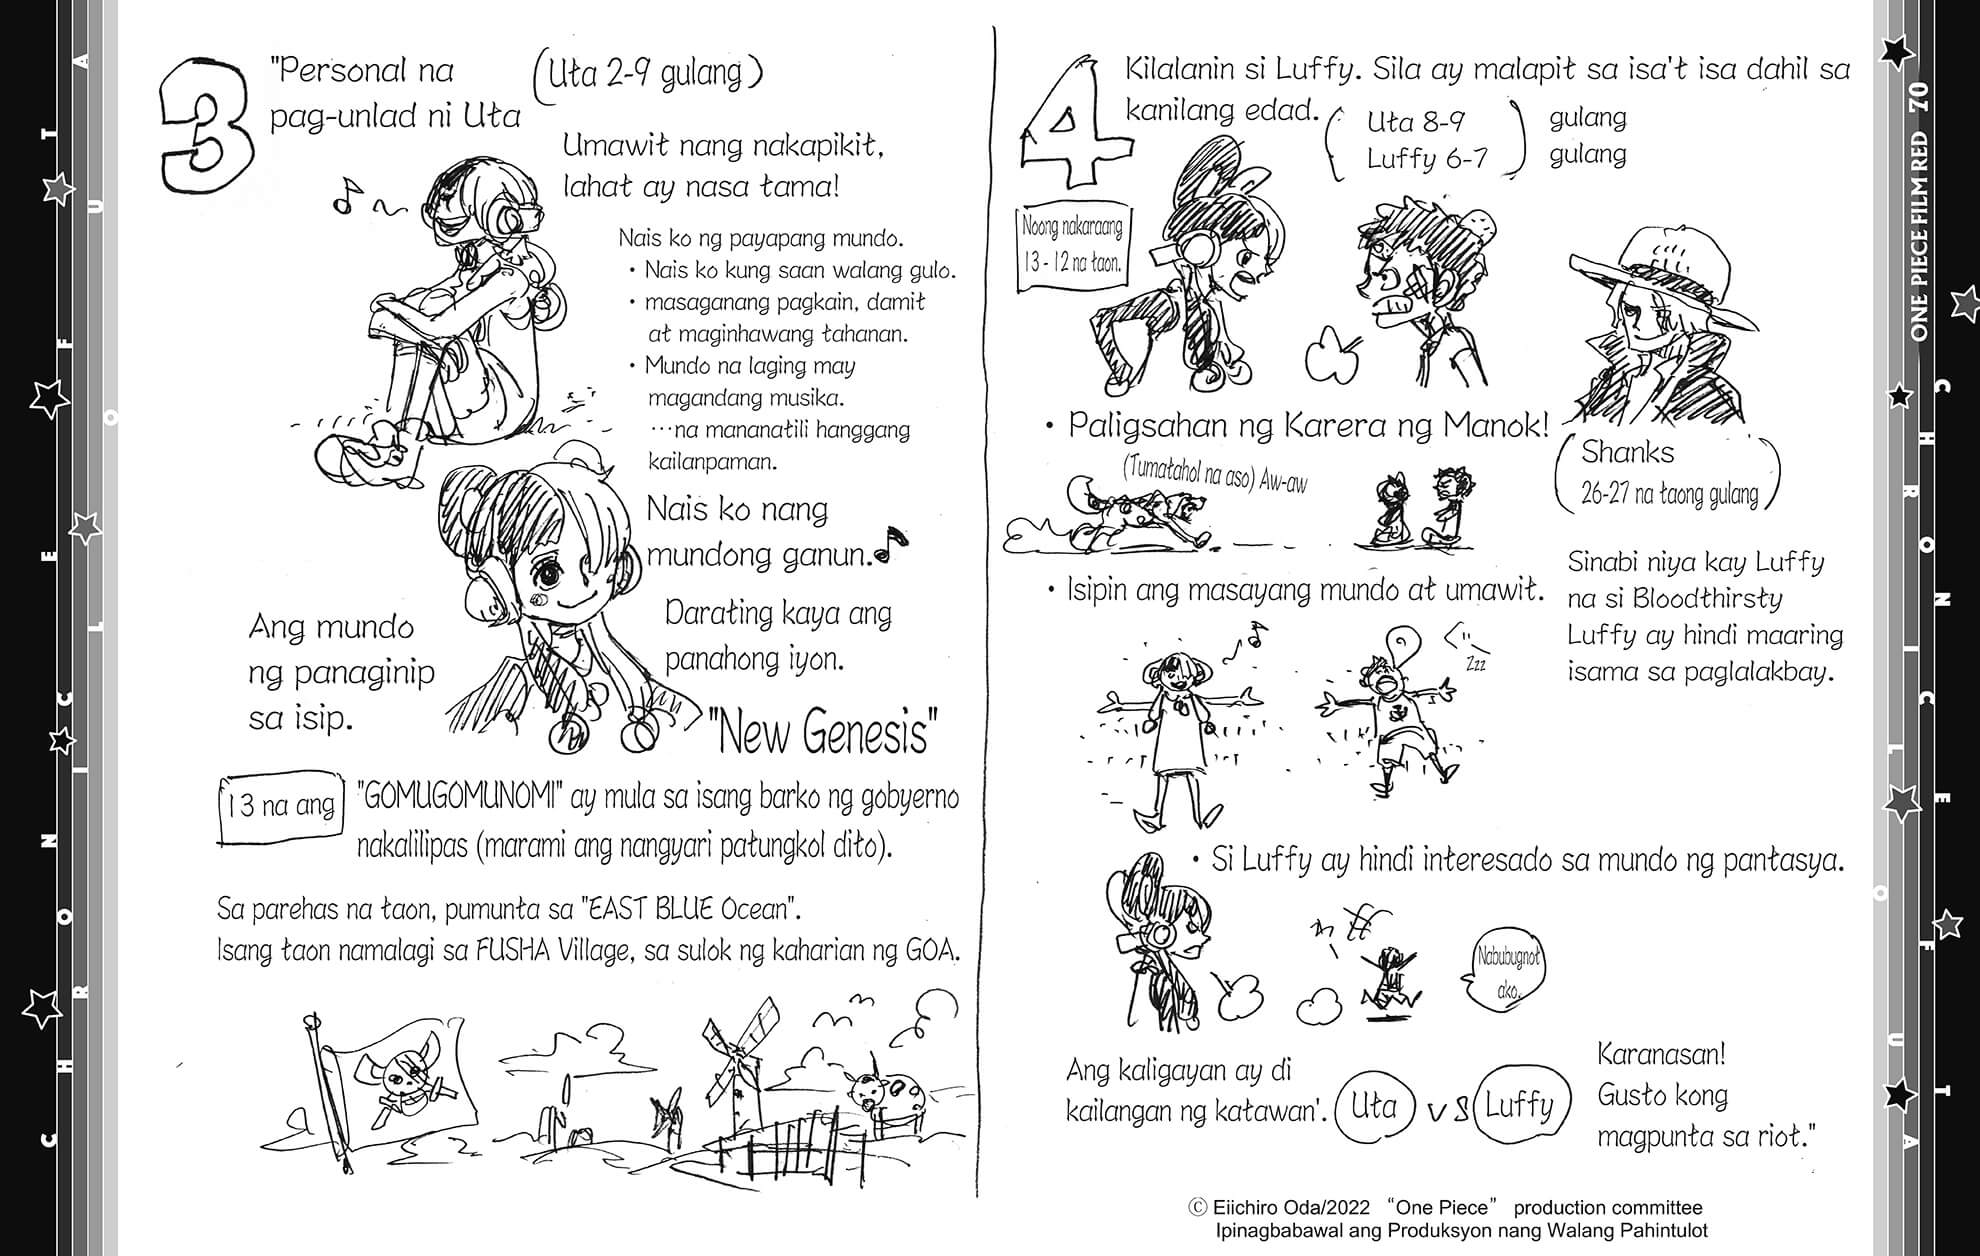 3
"Personal na
pag-unlad ni Uta
(Uta 2-9 gulang)
Umawit nang nakapikit,
lahat ay nasa tama!
Nais ko ng payapang mundo.
• Nais ko kung saan walang gulo.
• masaganang pagkain, damit
at maginhawang tahanan.
• Mundo na laging may
magandang musika.
…na mananatili hanggang
kailanpaman.
Nais ko nang
mundong ganun.♪
Darating kaya ang
panahong iyon.
Ang mundo
ng panaginip
sa isip.
"New Genesis"
13 na ang
"GOMUGOMUNOMI" ay mula sa isang barko ng gobyerno
nakalilipas (marami ang nangyari patungkol dito).
Sa parehas na taon, pumunta sa "EAST BLUE Ocean".
Isang taon namalagi sa FUSHA Village, sa sulok ng kaharian ng GOA.
4
Kilalanin si Luffy. Sila ay malapit sa isa't isa dahil sa
kanilang edad.
(Uta 8-9) gulang
(Luffy 6-7) gulang
Noong nakaraang
13 - 12 na taon.
• Paligsahan ng Karera ng Manok!
(Tumatahol na aso) Aw-aw
(Shanks
26-27 na taong gulang)
• Isipin ang masayang mundo at umawit.
Zzz
Sinabi niya kay Luffy
na si Bloodthirsty
Luffy ay hindi maaring
isama sa paglalakbay.
• Si Luffy ay hindi interesado sa mundo ng pantasya.
Nabubugnot
ako.
Ang kaligayan ay di
kailangan ng katawan'.
Uta vs Luffy
Karanasan!
Gusto kong
magpunta sa riot."
© Eiichiro Oda/2022 “One Piece” production committee
Ipinagbabawal ang Produksyon nang Walang Pahintulot
ONE PIECE FILM RED 70
CHRONICLE OF UTA
CHRONICLE OF UTA